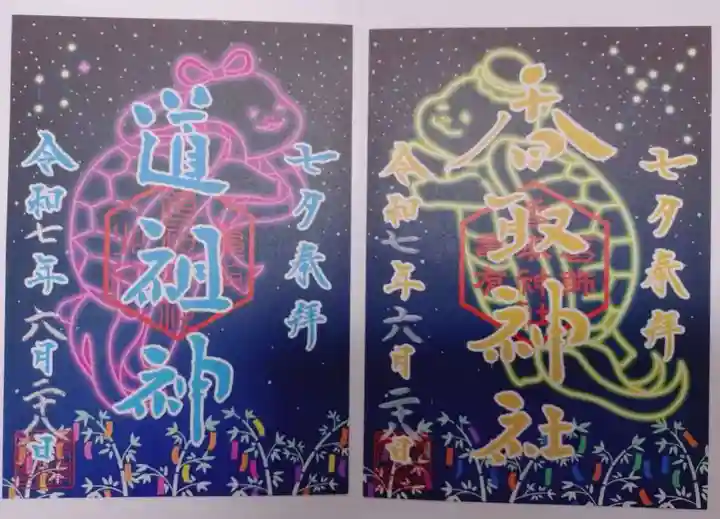 七夕奉拝
道祖神
令和七年 六月二十八日
七夕奉拝
香取神社
令和七年 六月二十八日